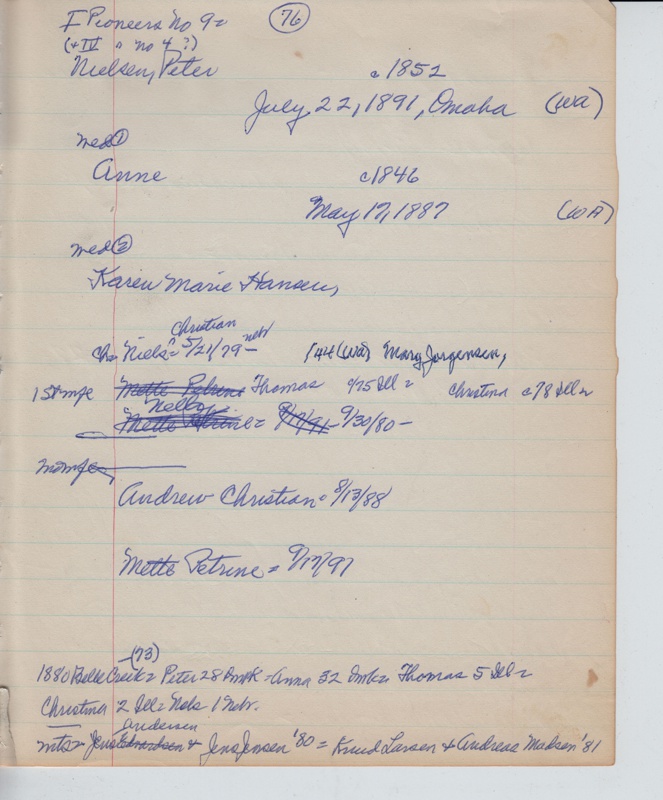 I Pioneers No 92 (76)
(+ IV " no 4 ?)
Nielsen, Peter c1852
July 22, 1891, Omaha (WA)
med ①
Anne c1846
May 17, 1887 (WA)
med ②
Karen Marie Hansen,
Christian
ch= Niels = 5/21/79 - nebr 144 (WA) Mary Jorgensen,
1st mfe Mette Petrine Thomas c/75 Ill = Christina c78 Ill =
Nelly
Mette Petrine = 9/17/91 9/30/80 -
Andrew Christian = 8/13/88
Mette Petrine = 9/17/91
(73)
1880 Belle Creek = Peter 28 DmK = Anna 32 Dmk = Thomas 5 Ill =
Christina 2 Ill = Nels 1 Nebr.
Andersen
mts = Jens Edvardsen & Jens Jensen '80 = Knud Larsen & Andreas Madsen '81